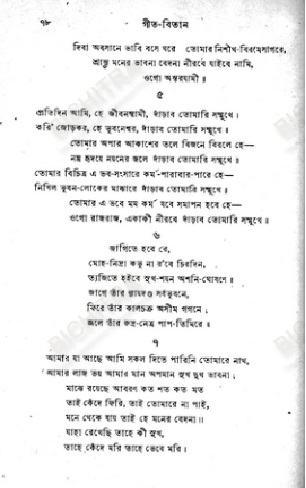 ৭৮ গীত-বিতান
দিবা অবসানে ভাবি বসে ঘরে তোমার নিশীথ-বিরামসাগরে,
শ্রান্ত মনের ভাবনা বেদনা নীরবে যাইবে নামি,
ওগো অন্তরযামী॥
৫
প্রতিদিন আমি, হে জীবনস্বামী, দাঁড়াব তোমারি সম্মুখে।
করি' জোড়কর, হে ভুবনেশ্বর, দাঁড়াব তোমারি সম্মুখে।
তোমার অপার আকাশের তলে বিজনে বিরলে হে—
নম্র হৃদয়ে নয়নের জলে দাঁড়াব তোমারি সম্মুখে॥
তোমার বিচিত্র এ ভব-সংসারে কর্ম-পারাবার-পারে হে—
নিখিল ভুবন-লোকের মাঝারে দাঁড়াব তোমারি সম্মুখে।
তোমার এ ভবে মম কর্ম যবে সমাপন হবে হে—
ওগো রাজরাজ, একাকী নীরবে দাঁড়াব তোমারি সম্মুখে॥
৬
জাগিতে হবে রে,
মোহ-নিদ্রা কভু না র'বে চিরদিন,
ত্যজিতে হইবে সুখ-শয়ন অশনি-ঘোষণে॥
জাগে তাঁর ন্যায়দণ্ড সর্বভুবনে,
ফিরে তাঁর কালচক্র অসীম গগনে;
জ্বলে তাঁর রুদ্র-নেত্র পাপ-তিমিরে॥
৭
আমার যা আছে আমি সকল দিতে পারিনি তোমারে নাথ,
আমার লাজ ভয় আমার মান অপমান সুখ দুখ ভাবনা;
মাঝে রয়েছে আবরণ কত শত কত মত
তাই কেঁদে ফিরি, তাই তোমারে না পাই,
মনে থেকে যায় তাই হে মনের বেদনা॥
যাহা রেখেছি তাহে কী সুখ,
তাহে কেঁদে মরি তাহে ভেবে মরি।